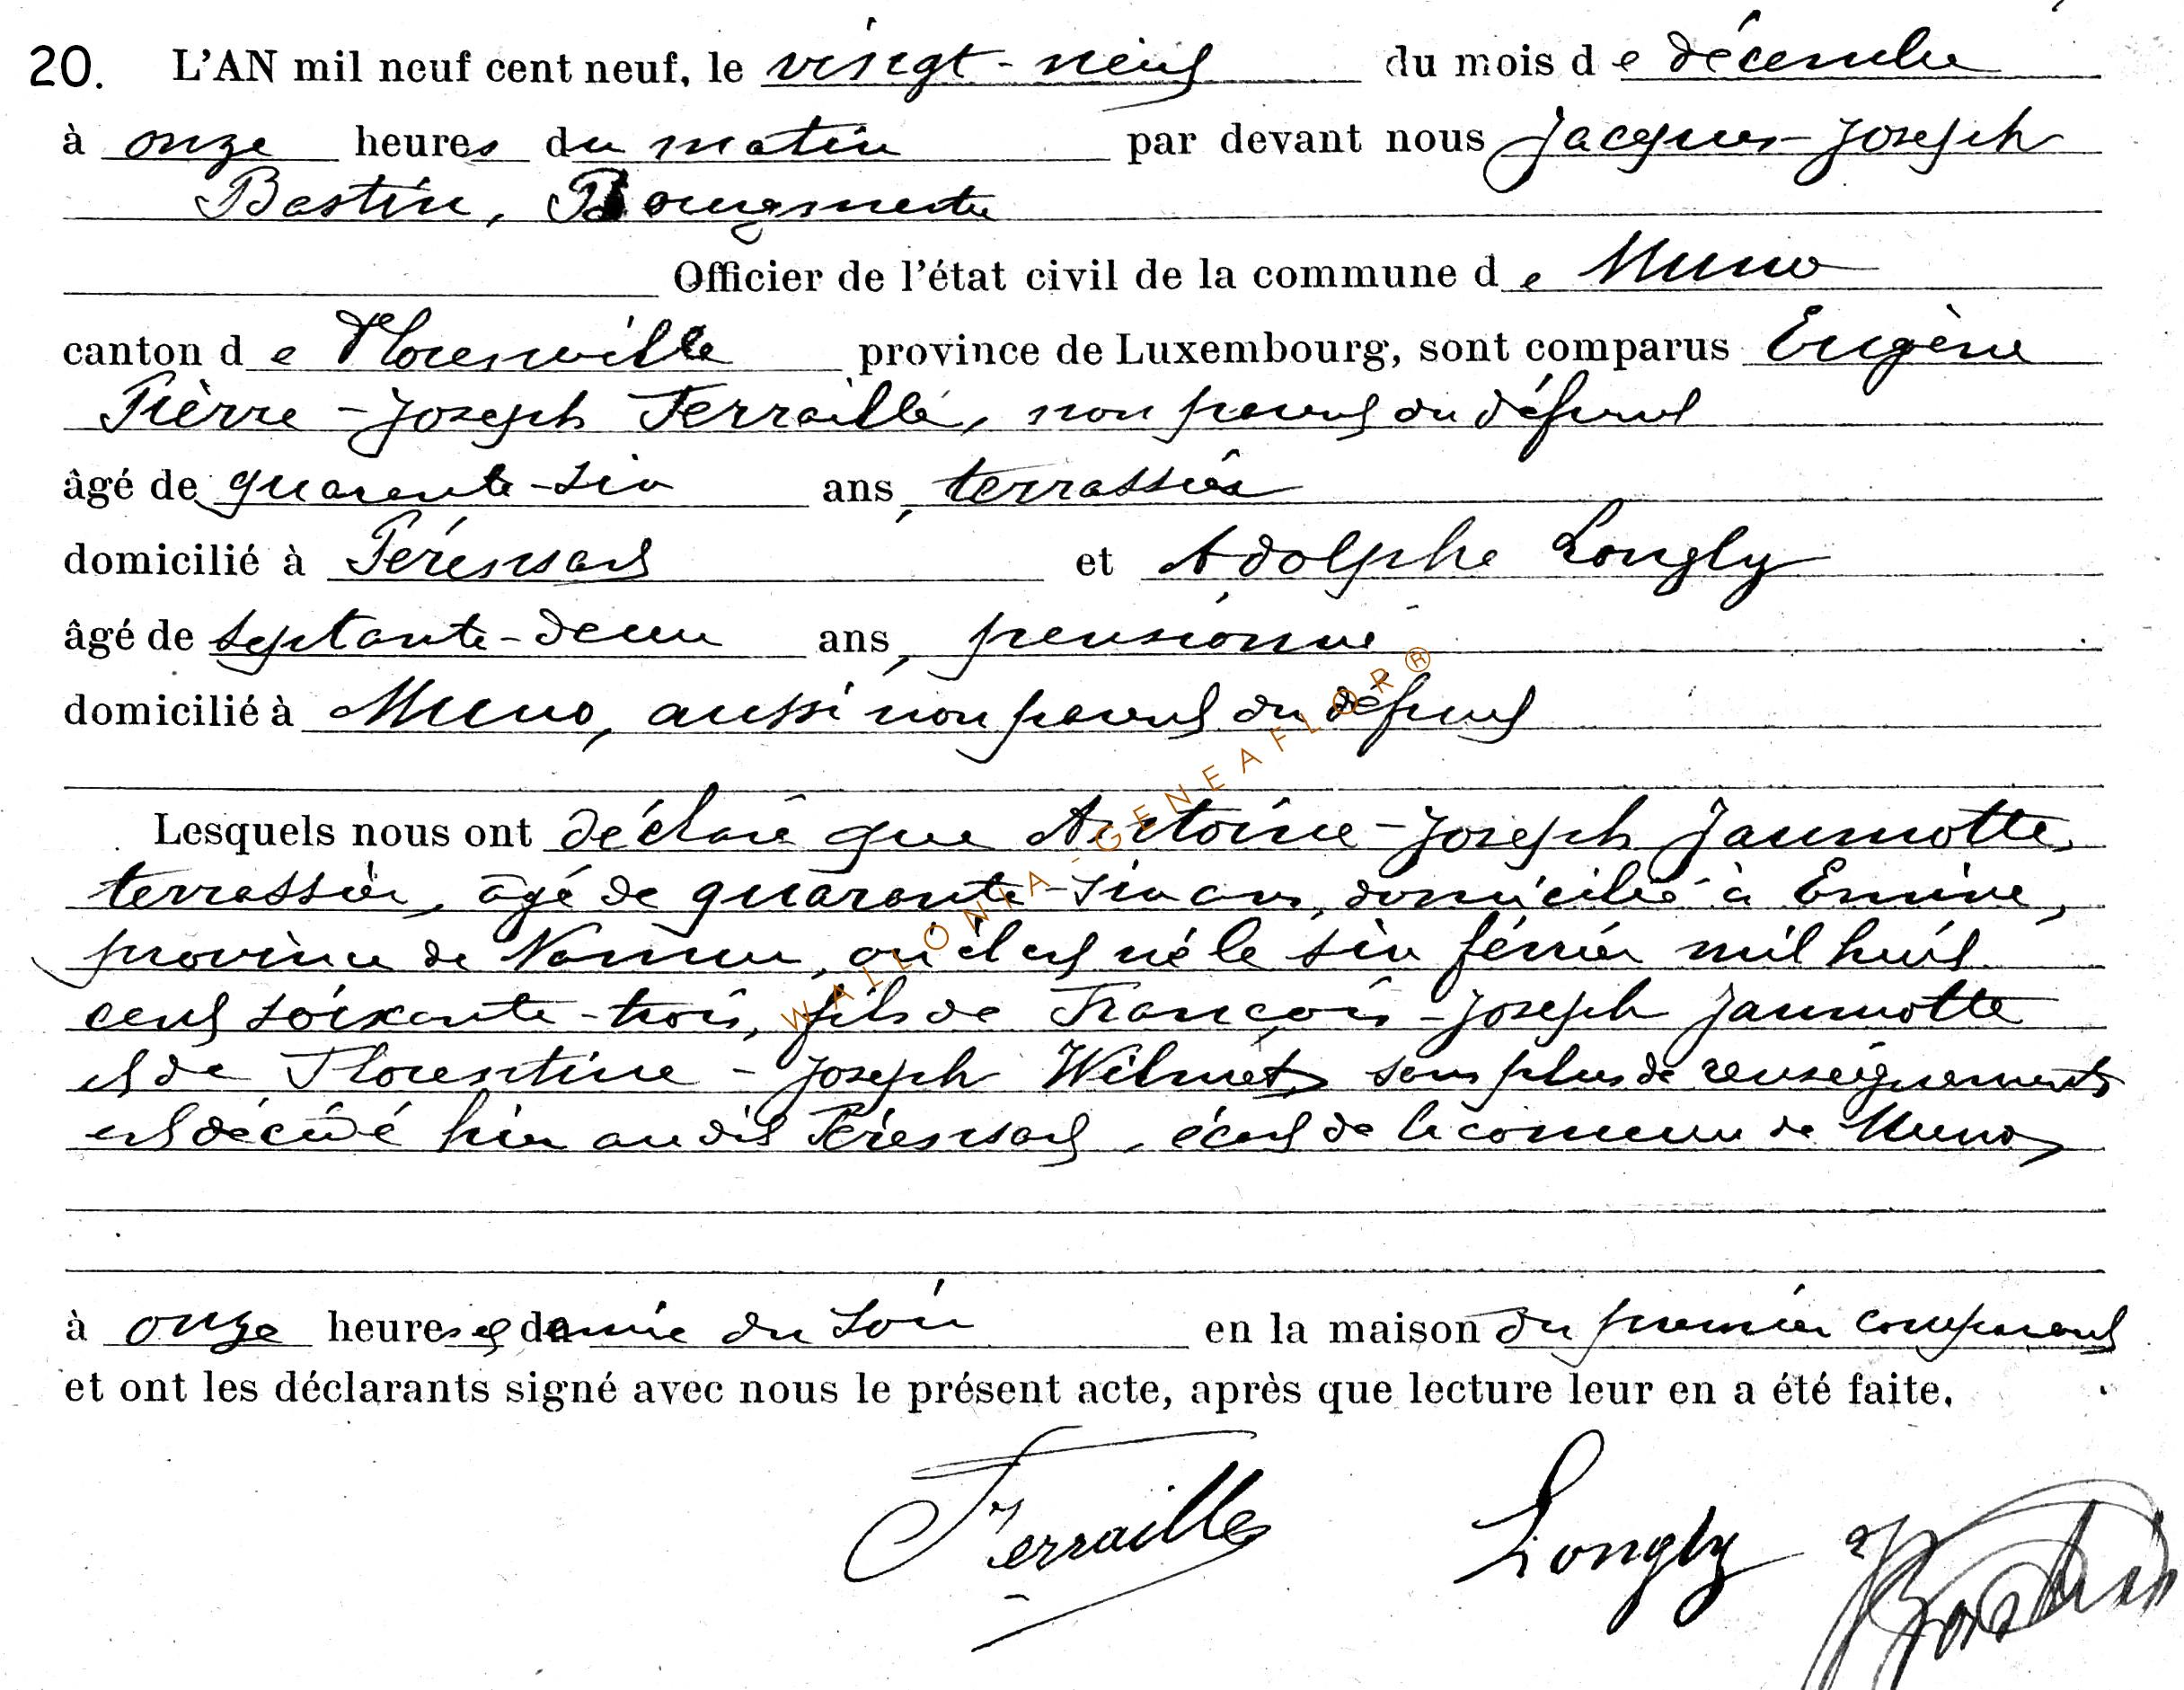 20. L'AN mil neuf cent neuf, le vingt-neuf du mois de décembre
à onze heures du matin par devant nous Jacques-Joseph
Bastin, Bourgmestre
Officier de l'état civil de la commune de Muno
canton de Florenville province de Luxembourg, sont comparus Eugène
Pierre-Joseph Terraille, non parent du défunt
âgé de quarante-six ans, terrassier
domicilié à et Adolphe Longly
âgé de septante-deux ans, pensionné
domicilié à Muno, aussi non parent du défunt
Lesquels nous ont déclaré que Antoine-Joseph Jaumotte,
terrassier, âgé de quarante-six ans, domicilié à Emine,
province de Namur, où il est né le six février mil huit
cent soixante-trois, fils de François-Joseph Jaumotte
et de Florentine-Joseph Wilmet, sans plus de renseignements
est décédé hier au dit , écart de la commune de Muno,
à onze heures et demie du soir en la maison du premier comparant
et ont les déclarants signé avec nous le présent acte, après que lecture leur en a été faite.
Terraille Longly JBastin
WALLONIA - GENEAFLOR®